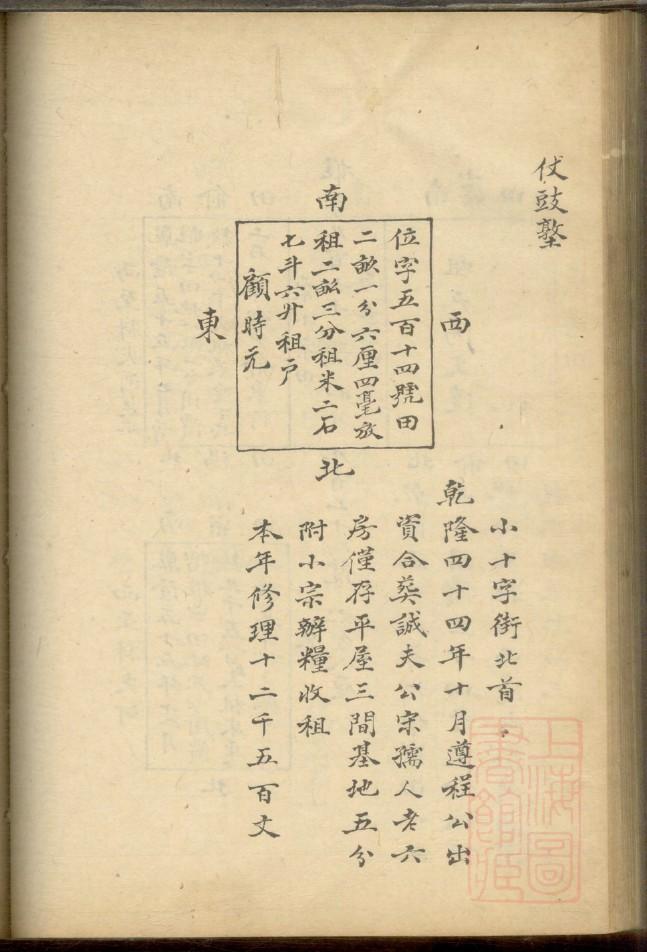 仗鼓墪
南
西
位字五百十四號田
二畝一分六厘四毫放
租二畝三分租米二石
七斗六升租戶
顧時元
東
北
小十字街北首
乾隆四十四年十月遵程公出
資合葬誠夫公宗孺人老六
房僅存平屋三間基地五分
附小宗辦糧收租
本年修理十二千五百文
上海圖書館藏